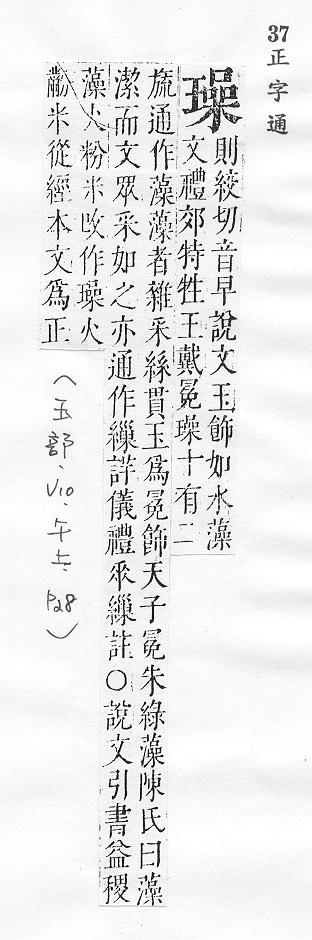 37正字通
璪
則絞切音早說文玉飾如水藻
文禮郊特牲王戴冕璪十有二
旒通作藻藻者雜采絲貫玉為冕飾天子冕朱綠藻陳氏曰藻
潔而文眾采如之亦通作繅詳儀禮來繅註○說文引書益稷
藻火粉米改作璪火
黺米從經本文為正
(玉部、V10、午上、P28)